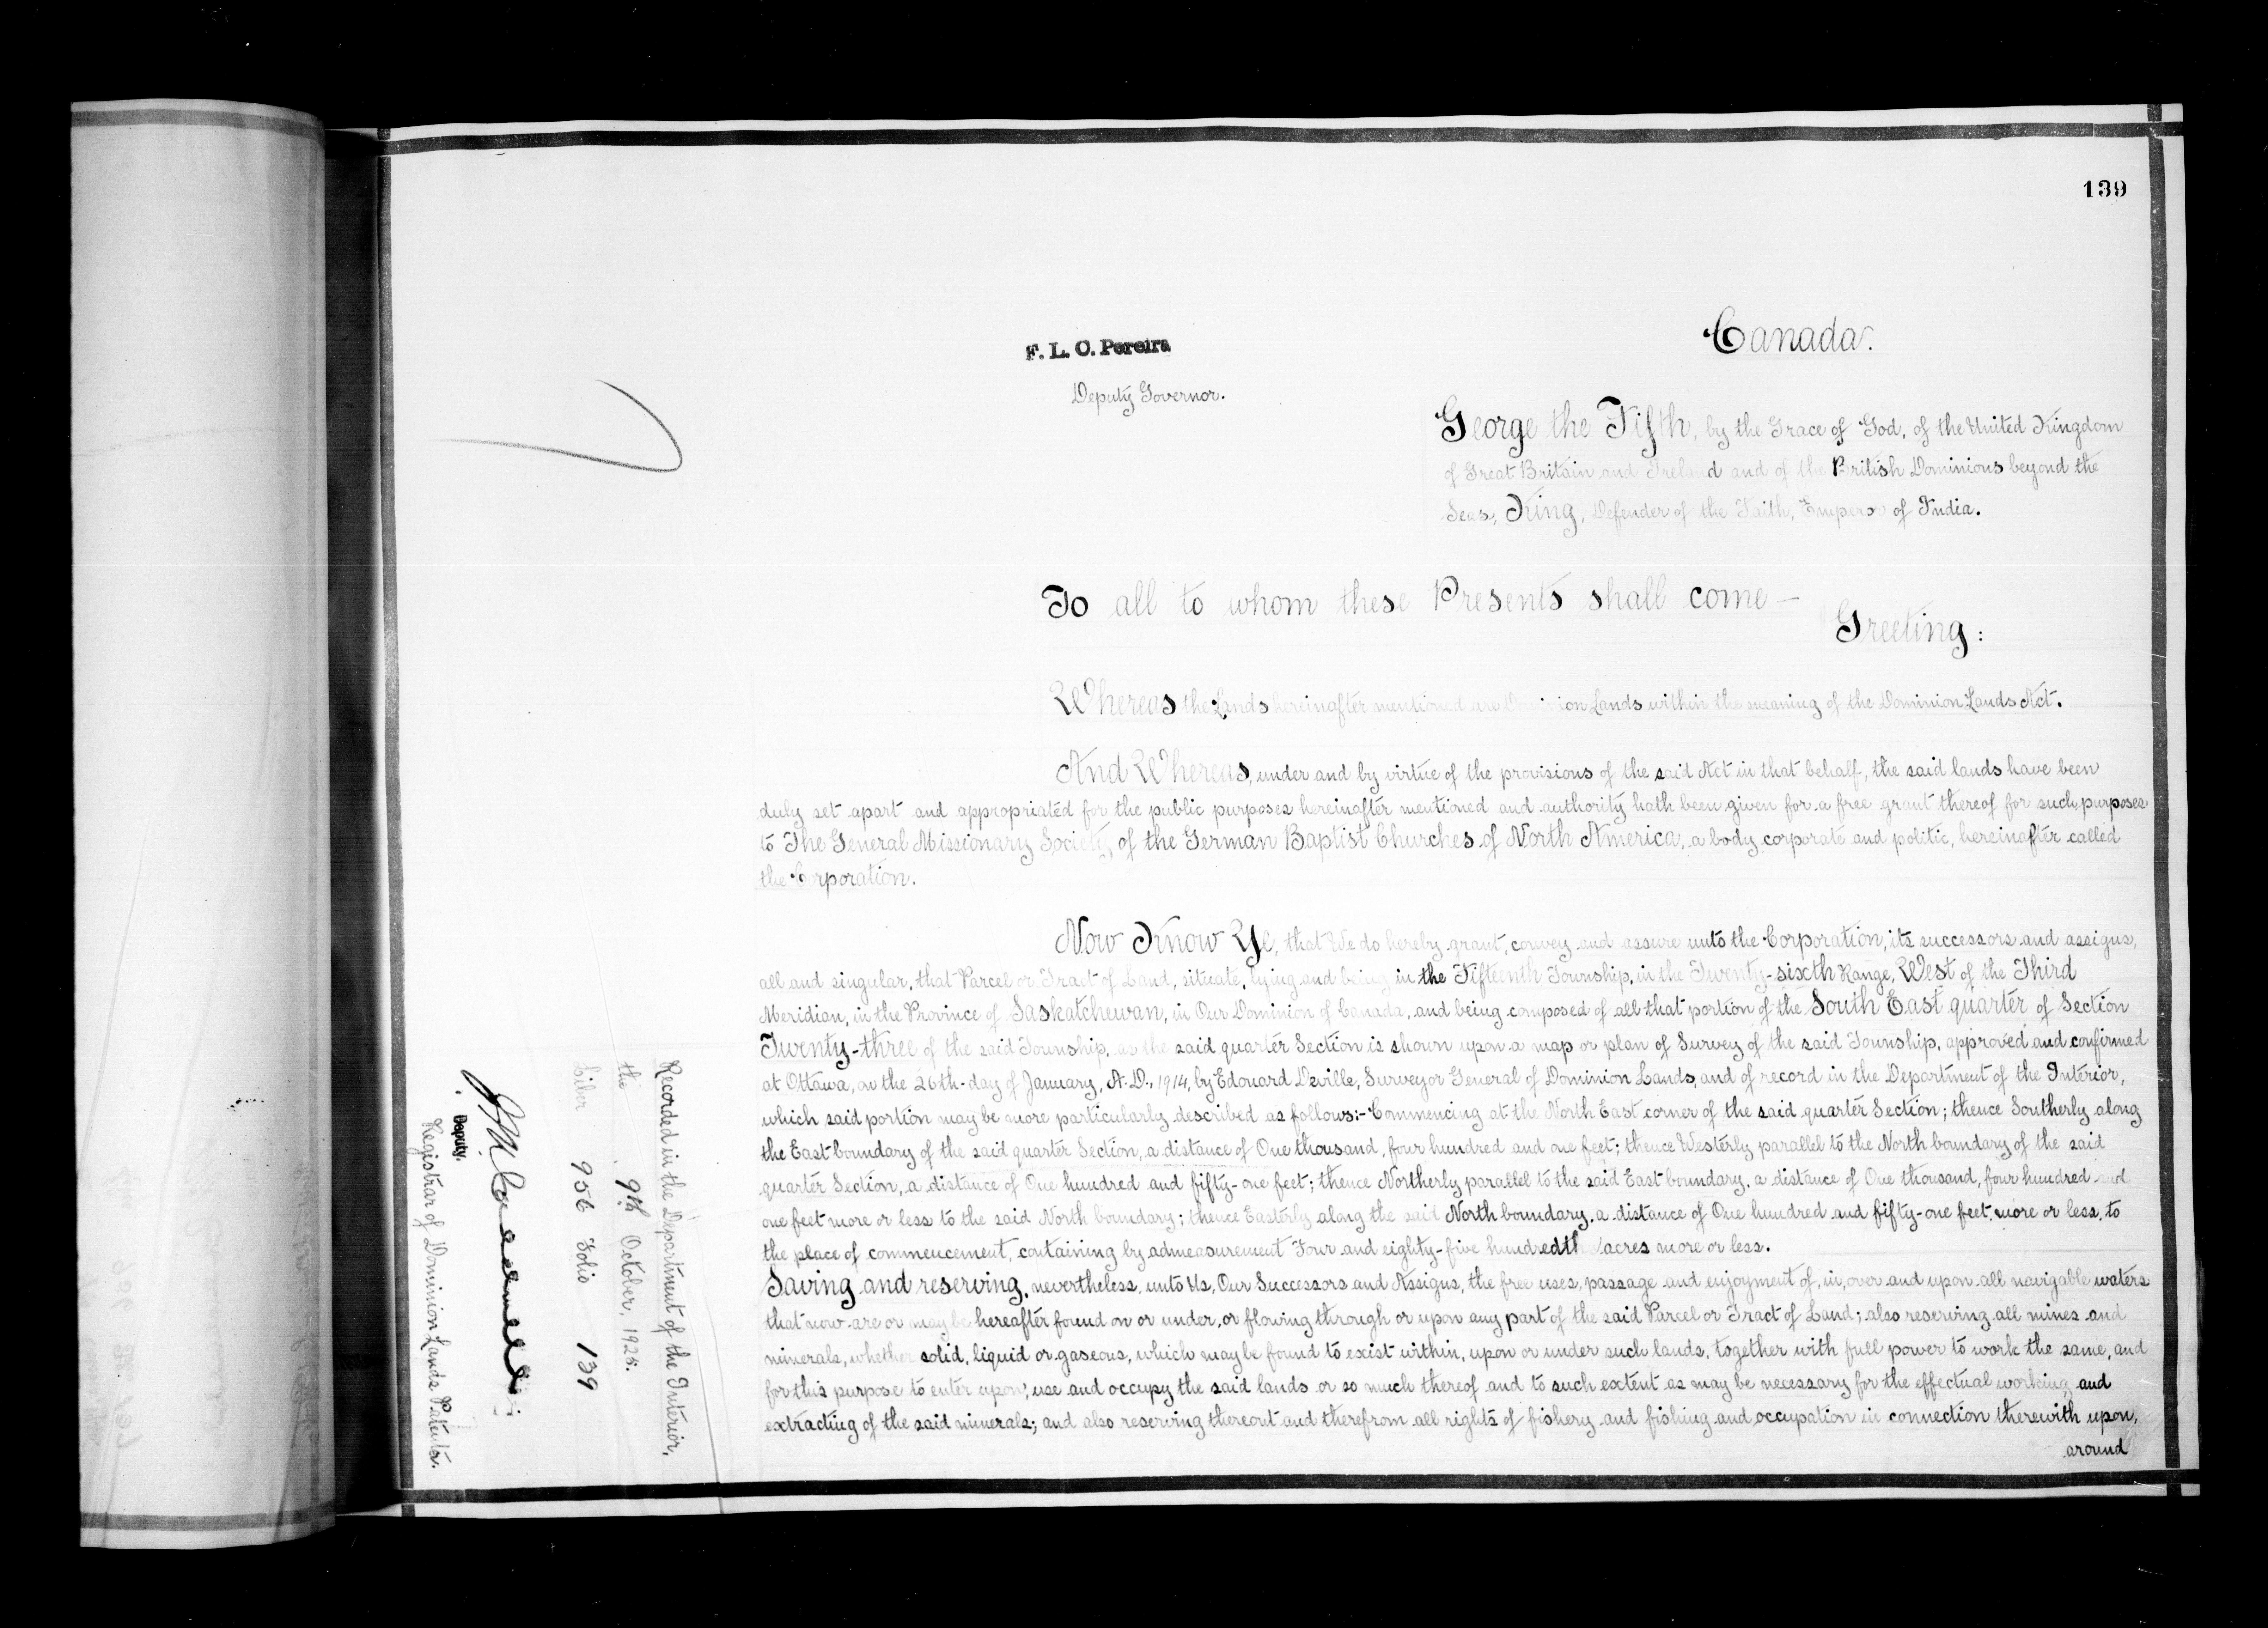 139
Canada.
F. L. C. Pereira
Deputy Governor.
George the Fifth, by the Grace of God, of the United Kingdom
of Great Britain and Ireland and of the British Dominions beyond the
Seas, King, Defender of the Faith, Emperor of India.
To all to whom these Presents shall come—
Greeting:
Whereas the Lands hereinafter mentioned are Dominion Lands within the meaning of the Dominion Lands Act.
And Whereas, under and by virtue of the provisions of the said Act in that behalf, the said lands have been
duly set apart and appropriated for the public purposes hereinafter mentioned and authority hath been given for a free grant thereof for such purposes
to The General Missionary Society, of the German Baptist Churches of North America, a body corporate and politic, hereinafter called
the Corporation.
Now Know Ye, that We do hereby grant, convey and assure unto the Corporation, its successors and assigns,
all and singular, that Parcel or Tract of Land, situate, lying and being in the Fifteenth Township, in the Twenty-sixth Range, West of the Third
Meridian, in the Province of Saskatchewan, in Our Dominion of Canada, and being composed of all that portion of the South East quarter of Section
Twenty-three of the said Township, as the said quarter Section is shown upon a map or plan of Survey of the said Township, approved and confirmed
at Ottawa, on the 26th day of January, A.D., 1914, by Edouard Deville, Surveyor General of Dominion Lands, and of record in the Department of the Interior,
which said portion may be more particularly described as follows:- Commencing at the North East corner of the said quarter Section; thence Southerly along
the East boundary of the said quarter Section, a distance of One thousand, four hundred and one feet; thence Westerly parallel to the North boundary of the said
quarter Section, a distance of One hundred and fifty-one feet; thence Northerly parallel to the said East boundary, a distance of One thousand, four hundred and
one feet more or less to the said North boundary; thence Easterly along the said North boundary, a distance of One hundred and fifty-one feet, more or less, to
the place of commencement, containing by admeasurement Four and eighty-five hundredths acres more or less.
Saving and reserving, nevertheless, unto Us, Our Successors and Assigns, the free uses, passage and enjoyment of, in, over and upon all navigable waters
that now are or may be hereafter found on or under, or flowing through or upon any part of the said Parcel or Tract of Land; also reserving all mines and
minerals, whether solid, liquid or gaseous, which may be found to exist within, upon or under such lands, together with full power to work the same, and
for this purpose to enter upon, use and occupy the said lands or so much thereof and to such extent as may be necessary for the effectual working and
extracting of the said minerals; and also reserving thereout and therefrom all rights of fishery and fishing and occupation in connection therewith upon,
around
Recorded in the Department of the Interior,
the 9th October, 1925.
Liber 956 Folio 139
Deputy.
Registrar of Dominion Lands Patents.